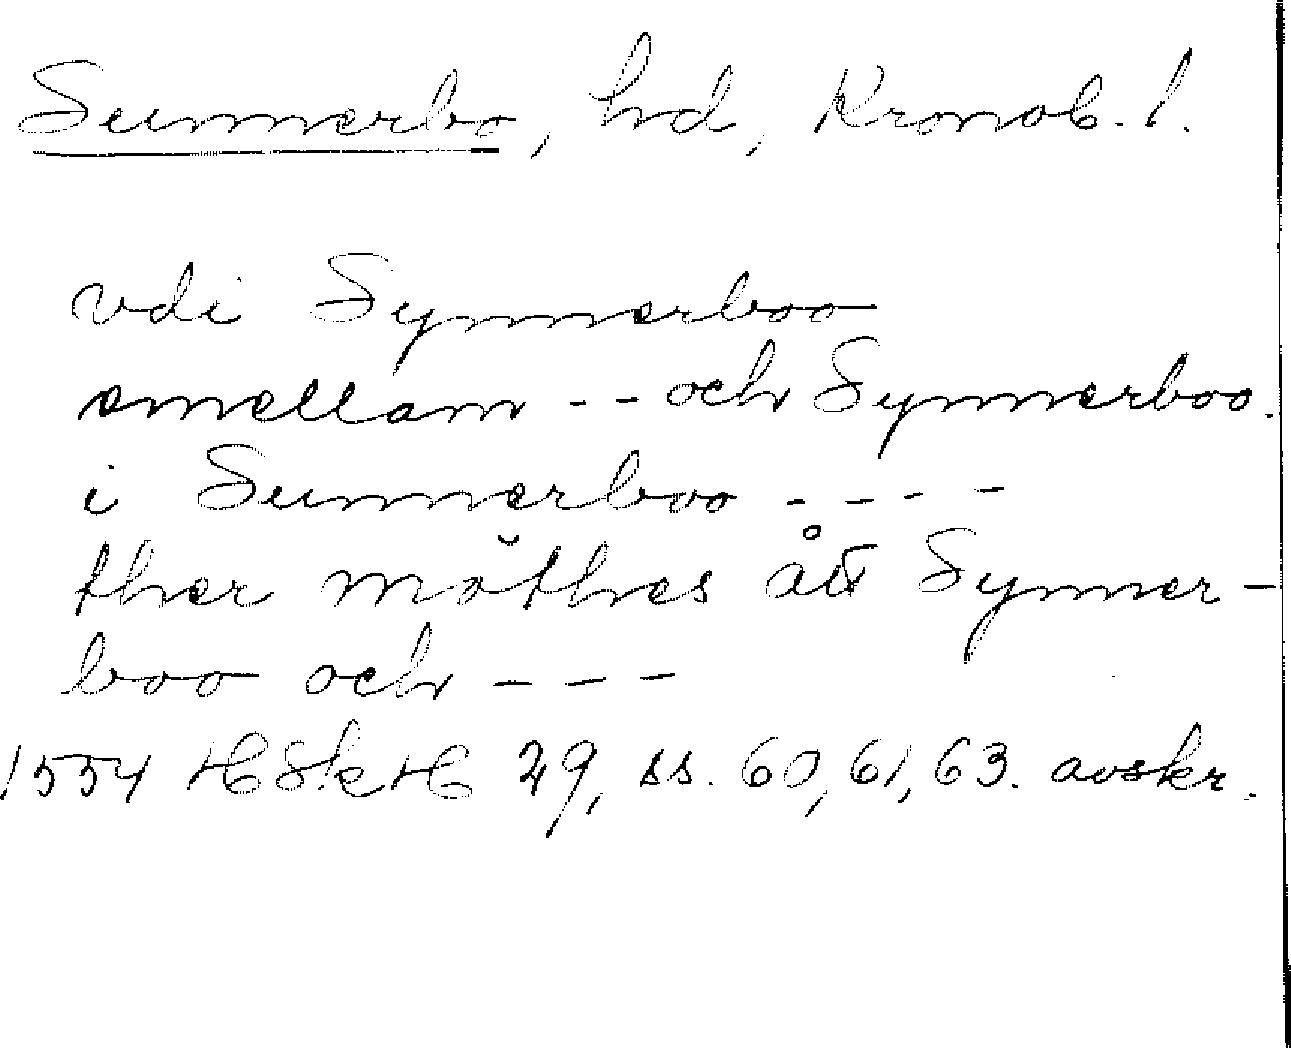 Sunnerbo, hd, Kronob. l.
vdi Synnerboo
emellam -- och Synnerboo.
i Sunnerboo ----
ther möthes ått Synner-
boo och ---
1554 HSkH 29, ss. 60, 61, 63. avskr.